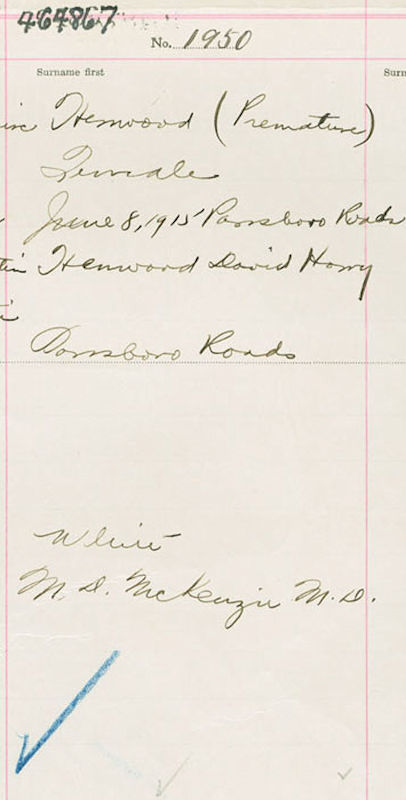 464867
No. 1950
Surname first
Surn
Henwood (Premature)
Female
June 8, 1915 Parrsboro Roads
Henwood David Harry
Parrsboro Roads
White
M. D. McKenzie M.D.